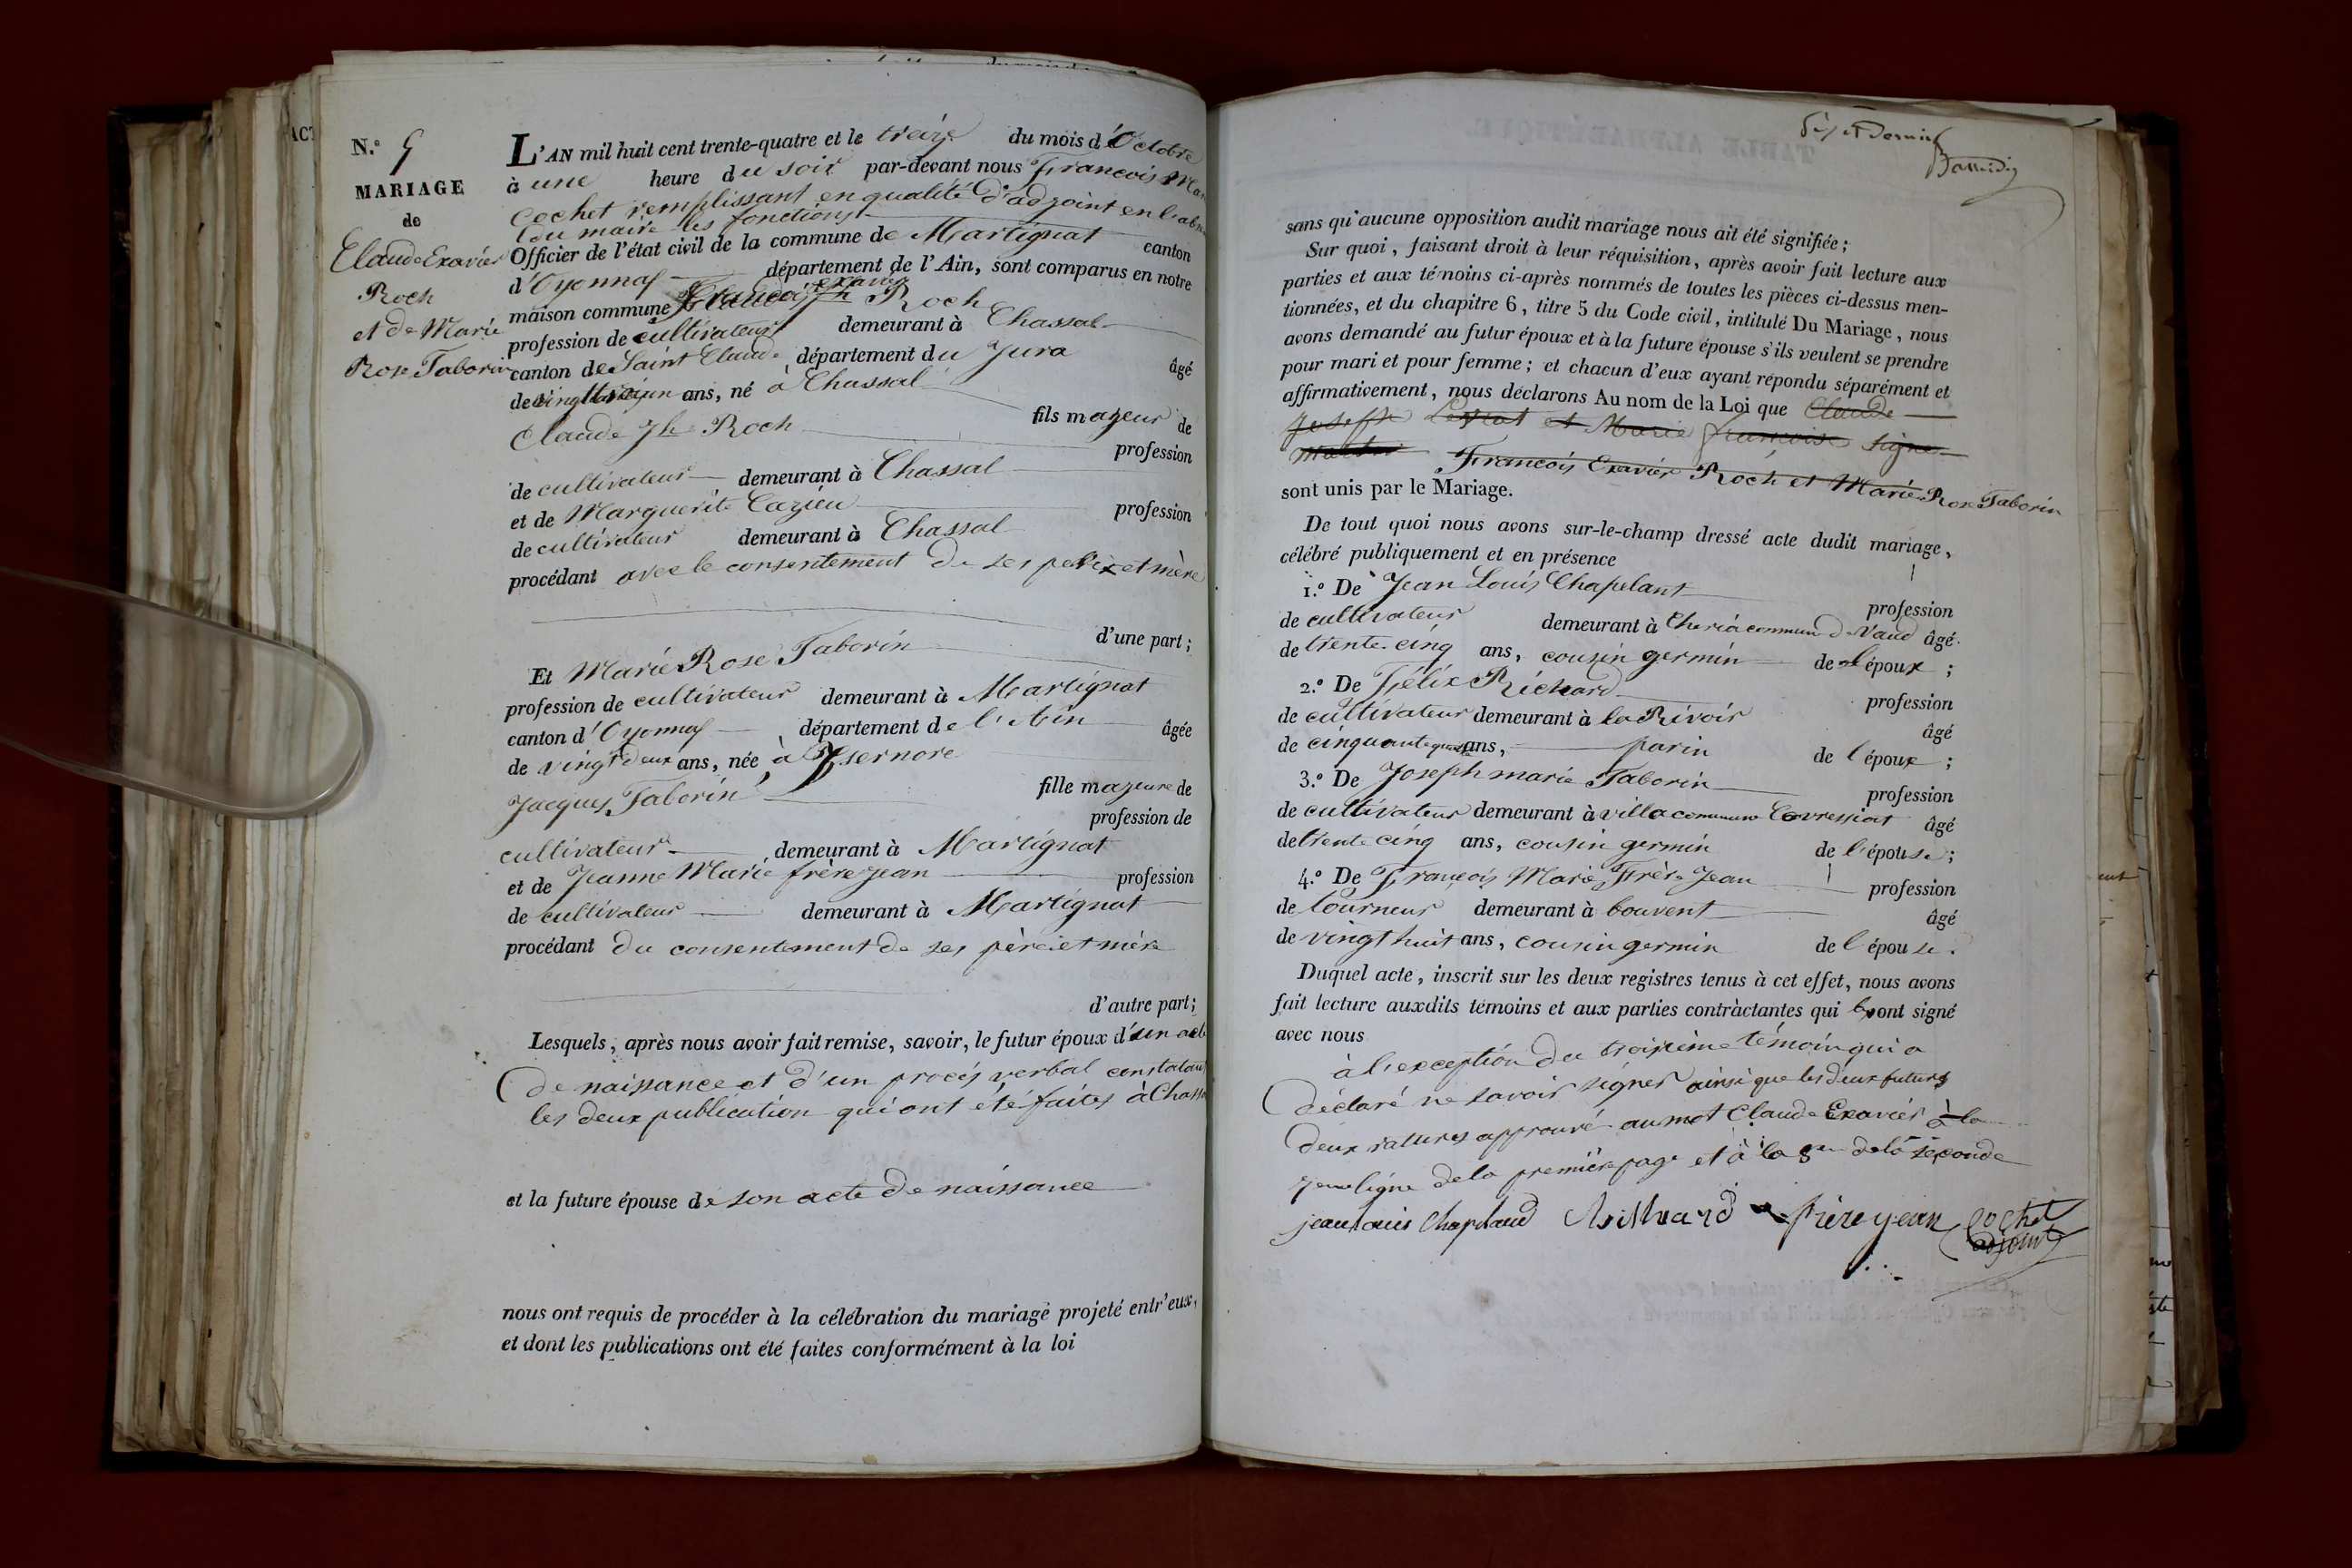 N.° 9
MARIAGE
de
Claude Exavier
Roch
et de Marie
Rose Taborin
L'AN mil huit cent trente-quatre et le treize du mois d'Octobre
à une heure du soir par-devant nous François Mar
Cochet remplissant en qualité d'adjoint en l'abs
du maire les fonctions
Officier de l'état civil de la commune de Martignat canton
d'Oyonnas département de l'Ain, sont comparus en notre
maison commune Claude exavier Roch
profession de cultivateur demeurant à Chassal
canton de Saint Claude département du Jura âgé
de vingt ans, né à Chassal
fils majeur de
Claude Jh Roch profession
de cultivateur demeurant à Chassal
et de Marguerite Cazieu profession
de cultivateur demeurant à Chassal
procédant avec le consentement de ses père et mère
d'une part;
Et Marie Rose Taborin
profession de cultivateur demeurant à Martignat
canton d'Oyonnas département de l'Ain âgée
de vingt deux ans, née à Isernore
fille majeure de
Jacques Taborin profession de
cultivateur demeurant à Martignat
et de Jeanne Marie frère jean profession
de cultivateur demeurant à Martignat
procédant du consentement de ses père et mère
d'autre part;
Lesquels, après nous avoir fait remise, savoir, le futur époux d'un acte
de naissance et d'un procès verbal constatant
les deux publication qui ont été faites à Chassa
et la future épouse de son acte de naissance
nous ont requis de procéder à la célébration du mariage projeté entr'eux,
et dont les publications ont été faites conformément à la loi
sans qu'aucune opposition audit mariage nous ait été signifiée;
Sur quoi, faisant droit à leur réquisition, après avoir fait lecture aux
parties et aux témoins ci-après nommés de toutes les pièces ci-dessus men-
tionnées, et du chapitre 6, titre 5 du Code civil, intitulé Du Mariage, nous
avons demandé au futur époux et à la future épouse s'ils veulent se prendre
pour mari et pour femme; et chacun d'eux ayant répondu séparément et
affirmativement, nous déclarons Au nom de la Loi que Claude
Joseph et Marie françoise
François Exavier Roch et Marie Rose Taborin
sont unis par le Mariage.
De tout quoi nous avons sur-le-champ dressé acte dudit mariage,
célébré publiquement et en présence
1.° De Jean Louis Chapelant profession
de cultivateur demeurant à Cheria commun de Vaud âgé
de trente-cinq ans, cousin germin de l'époux;
2.° De Félix Richard profession
de cultivateur demeurant à la Rivoir âgé
de cinquante ans, parin de l'époux;
3.° De Joseph marie Taborin profession
de cultivateur demeurant à villa commune Cevressiat âgé
de trente cinq ans, cousin germin de l'épouse;
4.° De François Marie Frère Jean profession
de tourneur demeurant à bouvent âgé
de vingt huit ans, cousin germin de l'épouse.
Duquel acte, inscrit sur les deux registres tenus à cet effet, nous avons
fait lecture auxdits témoins et aux parties contractantes qui ont signé
avec nous
à l'exception du troisième témoin qui a
déclaré ne savoir signer ainsi que les deux futurs
deux ratures approuvé au mot Claude Exavier à la
7eme ligne de la première page et à la 8eme de la seconde
jean louis Chapeland Richard frère jean Cochet
adjoint